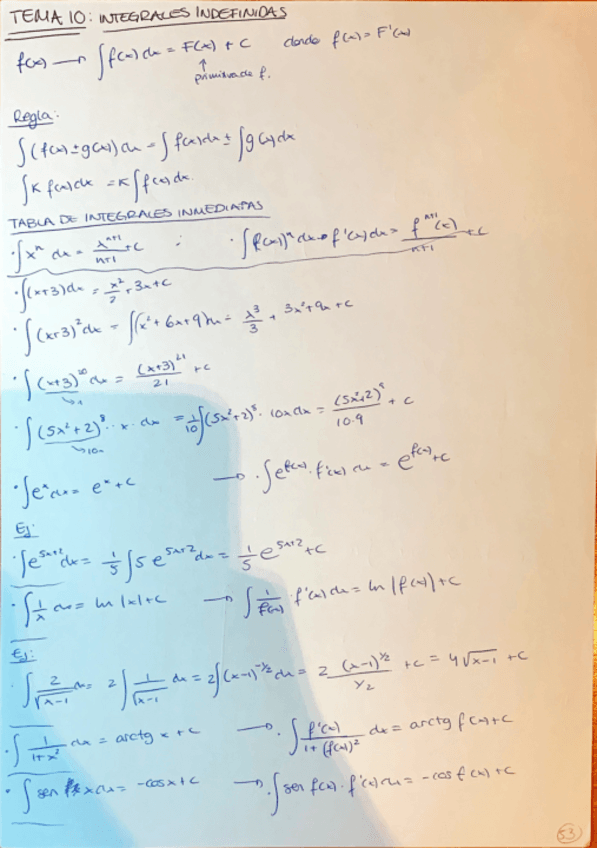 TEMA 10: INTEGRALES INDEFINIDAS
f(x) → ∫f(x) dx = F(x) + C donde f(x) = F'(x)
↑
primitiva de f.
Regla:
∫(f(x) ± g(x)) dx = ∫f(x)dx ± ∫g(x)dx
∫K f(x)dx = K∫f(x)dx.
TABLA DE INTEGRALES INMEDIATAS
· ∫xⁿ dx = xⁿ⁺¹/n+1 + C ; · ∫f(x))ⁿ dx · f'(x)dx = fⁿ⁺¹(x)/n+1 + C
· ∫(x+3)dx = x²/2 + 3x + C
· ∫(x+3)² dx = ∫(x² + 6x + 9)dx = x³/3 + 3x² + 9x + C
· ∫(x+3)²⁰ dx = (x+3)²¹/21 + C
↳1
· ∫(5x²+2)⁸ · x · dx = 1/10 ∫(5x²+2)⁸ · 10x dx = (5x²+2)⁹/10·9 + C
↳10x
· ∫eˣ dx = eˣ + C → · ∫e^f(x) · f'(x) dx = e^f(x) + C
Ej:
· ∫e^5x+2 dx = 1/5 ∫5 e^5x+2 dx = 1/5 e^5x+2 + C
· ∫1/x dx = ln |x| + C → ∫1/f(x) · f'(x) dx = ln |f(x)| + C
Ej:
· ∫2/√x-1 dx = 2 ∫1/√x-1 dx = 2∫(x-1)^-1/2 dx = 2 (x-1)^1/2/1/2 + C = 4√x-1 + C
· ∫1/1+x² dx = arctg x + C → · ∫f'(x)/1+(f(x))² dx = arctg f(x) + C
· ∫sen x dx = -cosx + C → · ∫sen f(x) · f'(x) dx = -cos f(x) + C
53